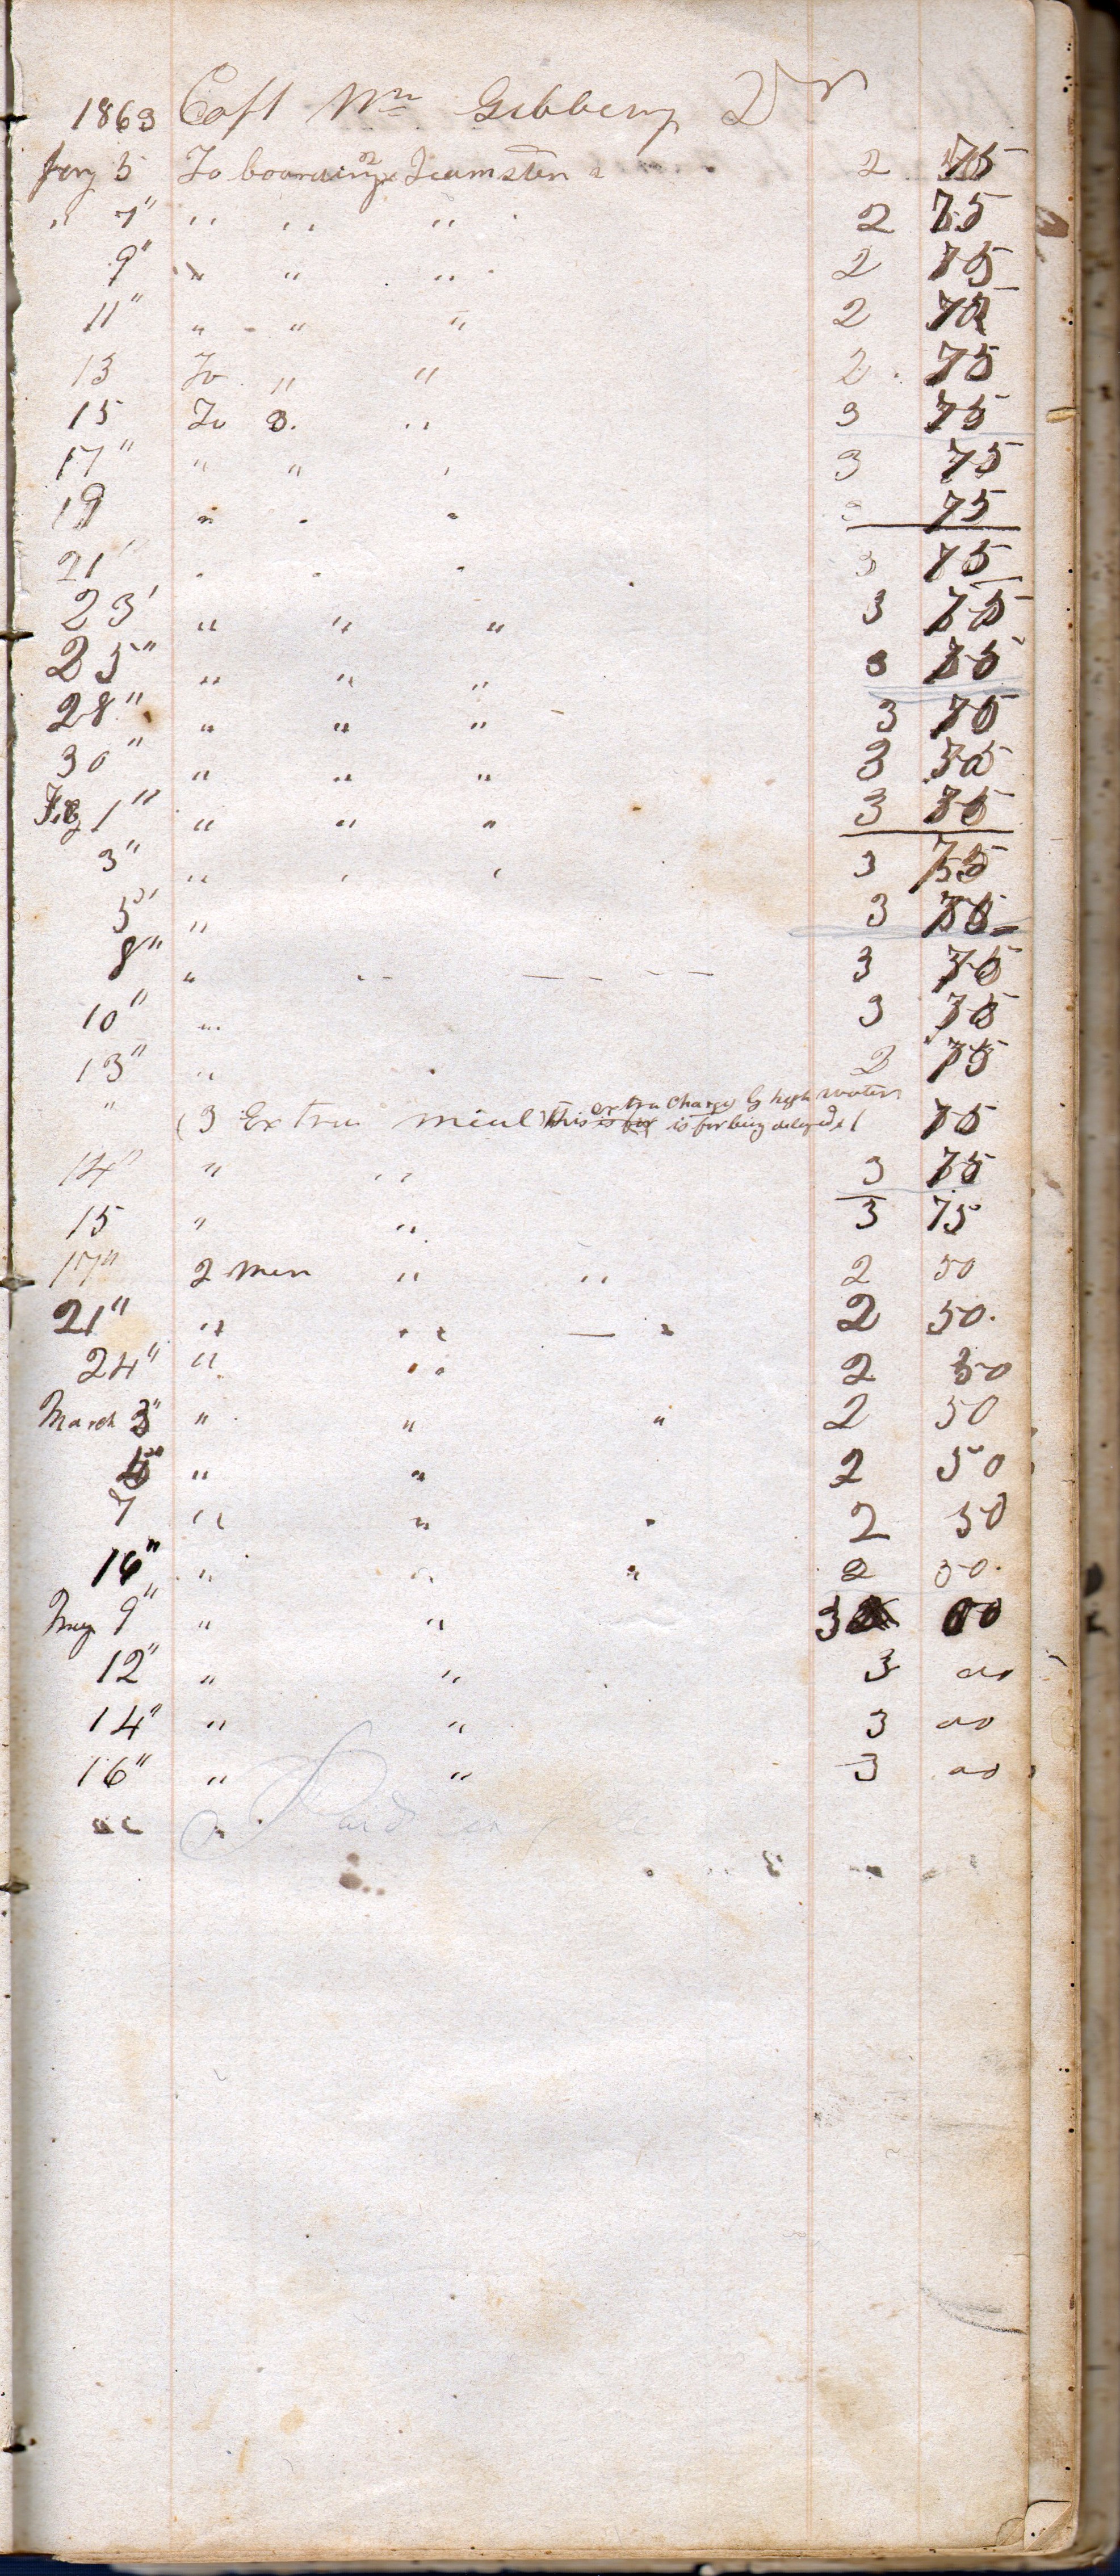 1863 Capt Wm Gibbeny Dr
Jany 5 To boarding 2 Teamsters a 2 75
" 7" " " " 2 75
9" " " " 2 75
11" " " " 2 75
13 To " " 2 75
15 To 3. " 3 75
17" " " " 3 75
19 " " " 3 75
21 " " " 3 75
23' " " " 3 75
25" " " " 3 75
28" " " " 3 75
30" " " " 3 75
Feb 1" " " " 3 75
3" " " " 3 75
5" " 3 75
8" " " 3 75
10" " 3 75
13" " 75
extra Charge by high water
" (3 Extra meal) this is for is for being delayed 75
14" " " 3 75
15 " " 3 75
17" 2 men " " 2 50
21" " " " 2 50.
24" " " 2 50
March 3" " " " 2 50
" " 2 50
7 " " " 2 50
16" " " " 2 50.
May 9" " " 3 00
12" " " 3 00
14" " " 3 00
16" " " 3 00
Paid in